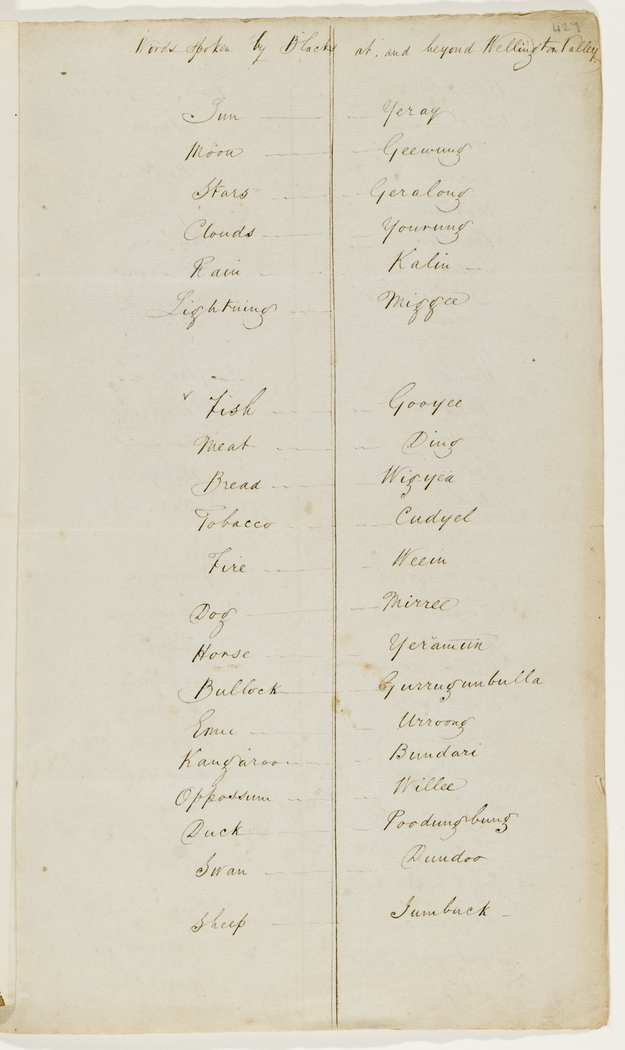 427
Words spoken by Blacks at, and beyond Wellington Valley
Sun Yeray
Moon Geewung
Stars Geralong
Clouds Yourung
Rain Kalin
Lightning Miggee
Fish Gooyee
Meat Ding
Bread Wigyea
Tobacco Cudyel
Fire Weein
Dog Mirree
Horse Yeramun
Bullock Gurrugunbulla
Emu Urroong
Kangaroo Bundari
Oppossum Willee
Duck Poodungbung
Swan Dundoo
Sheep Jumbuck